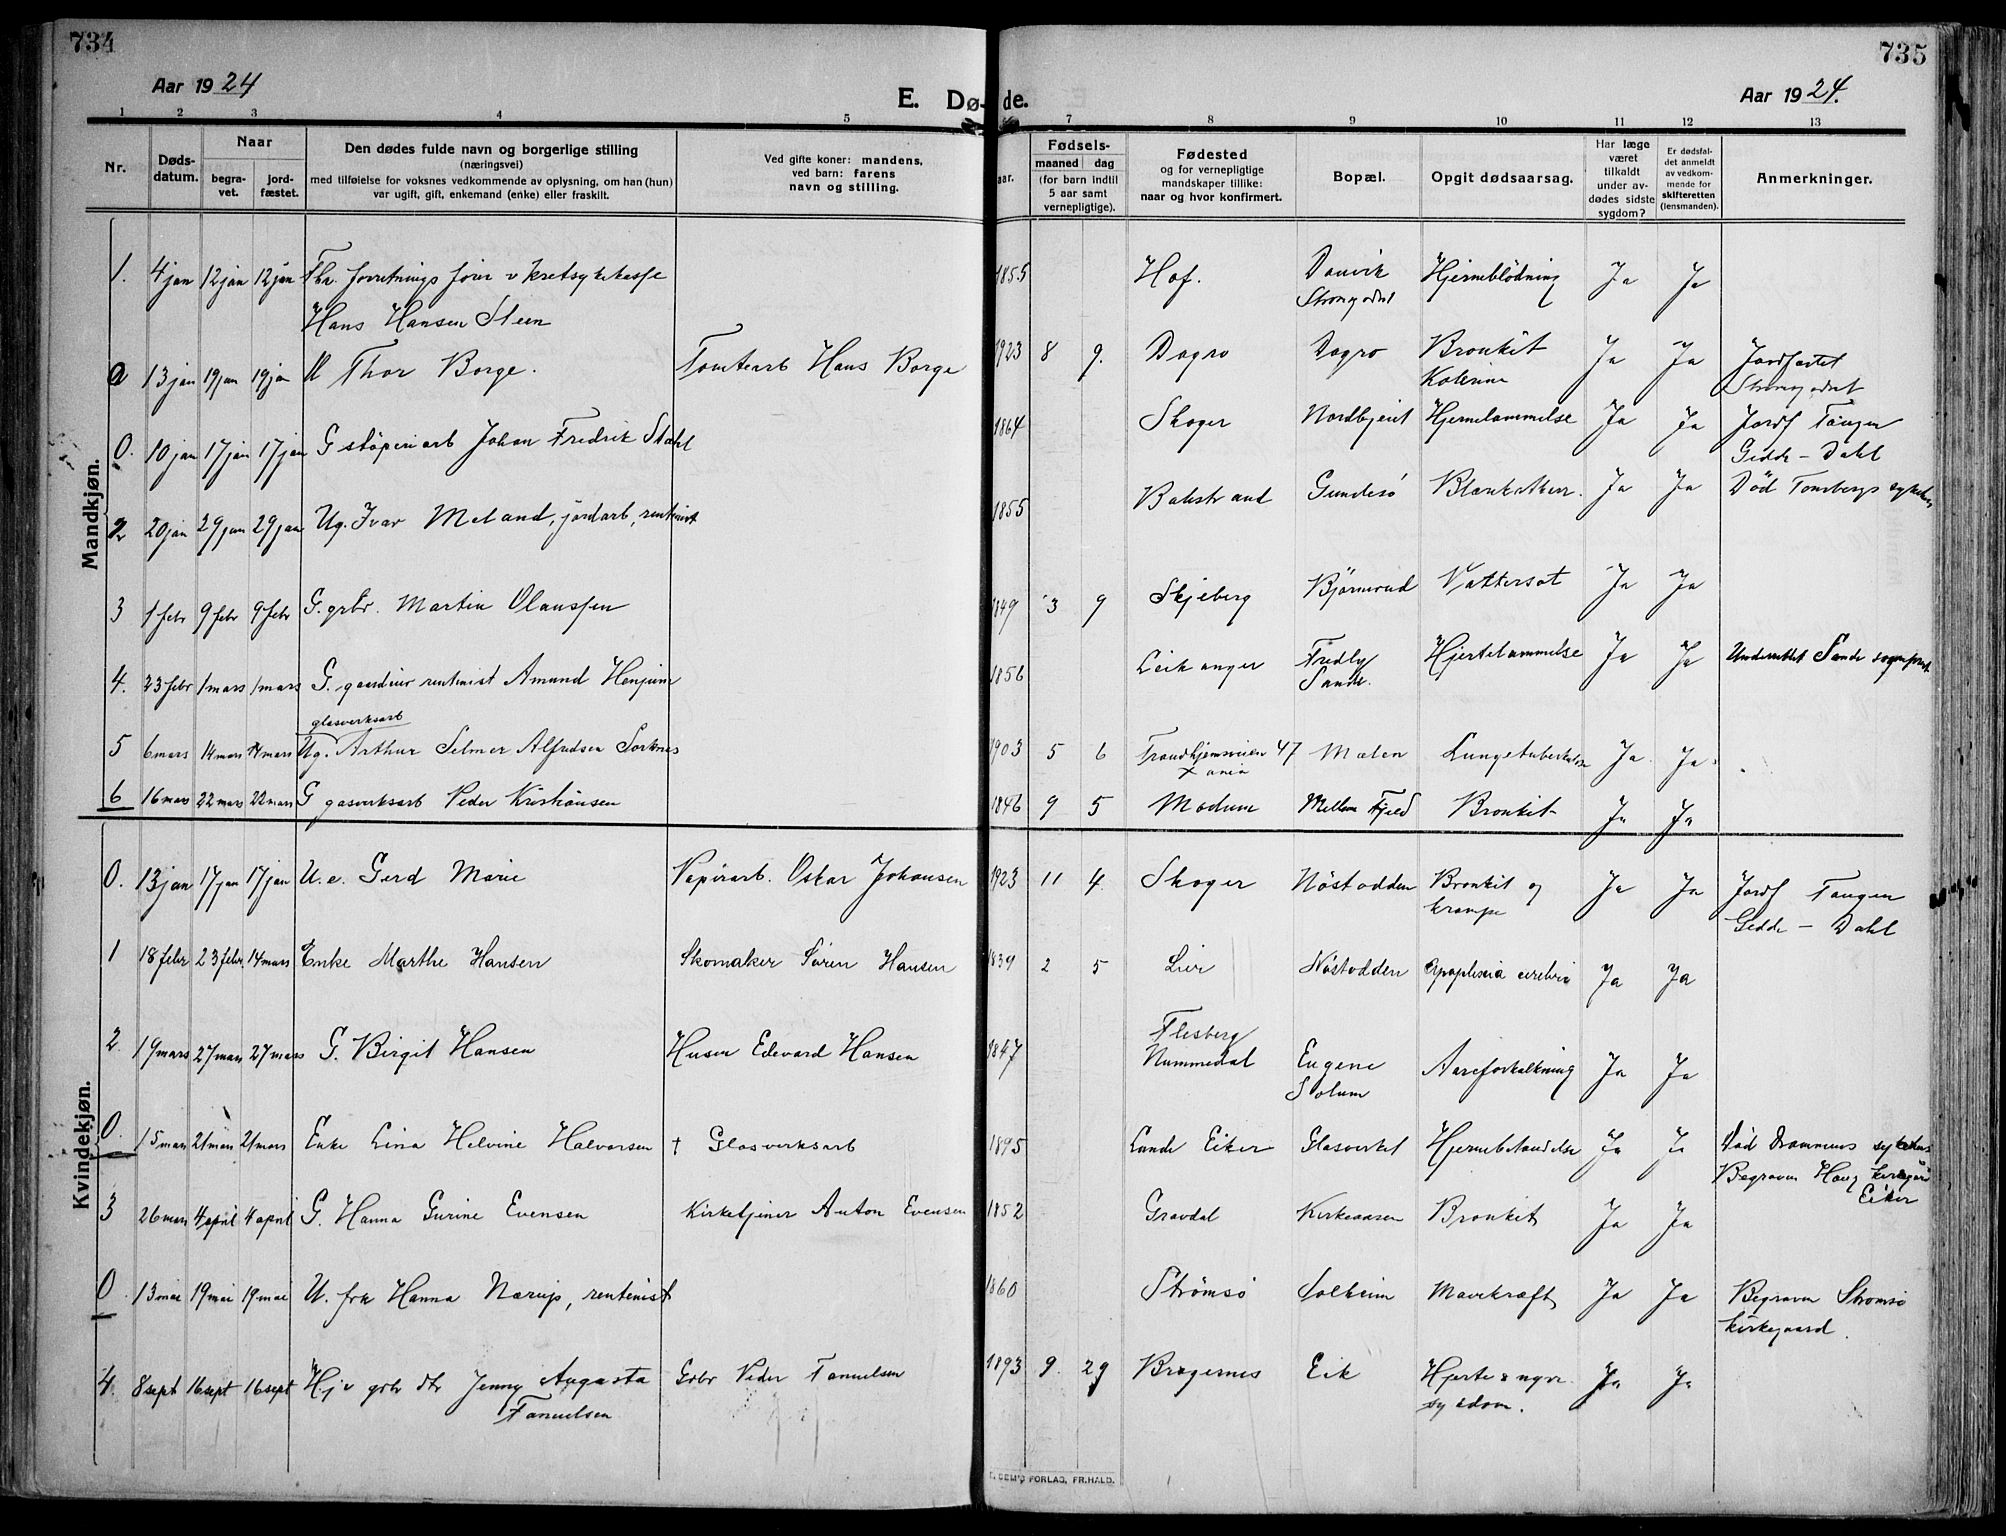 734
735
Aar 1924
E. Dø- de.
Aar 1924.
1 2 3 4 5 7 8 9 10 11 12 13
Nr.
Døds-
datum.
Naar
begra-
vet.
jord-
fæstet.
Den dødes fulde navn og borgerlige stilling
(næringsvei)
med tilføielse for voksnes vedkommende av oplysning, om han (hun)
var ugift, gift, enkemand (enke) eller fraskilt.
Ved gifte koner: mandens,
ved barn: farens
navn og stilling.
aar.
Fødsels-
maaned dag
(for barn indtil
5 aar samt
vernepligtige).
Fødested
og for vernepligtige
mandskaper tillike:
naar og hvor konfirmert.
Bopæl.
Opgit dødsaarsag.
Har læge
været
tilkaldt
under av-
dødes sidste
sygdom?
Er dødsfal-
det anmeldt
av vedkom-
mende for
skifteretten
(lensmanden).
Anmerkninger.
Mandkjøn.
1. 4 jan 12 jan 12 jan Fhv. forretningsfører v kretsykekasse 1855 Hof. Danvik Hjerneblödning Ja Ja
Hans Hansen Steen
13 jan 19 jan 19 jan Thor Borge. Tomtearb Hans Borge 1923 8 9. Dagro Dagro Bronkit Ja Ja Jordfæstet
Kolerine
0. 10 jan 17 jan 17 jan G støperiarb Johan Fredrik Stahl 1864 Skoger Hjernelammelse Ja Ja Jordf Tangen
Gedde - Dahl
2 20 jan 29 jan 29 jan Ug. Ivar Meland, jordarb, rentenist 1855 Balestrand Gundesö Ja Ja Död Tonsbergs sykehus
3 1 febr 9 febr 9 febr G. grbr. Martin Olaussen 1849 3 9 Skjeberg Björnerud Vattersot Ja Ja
4. 23 febr 1 mars 1 mars G. gaardeier rentenist Amund Henjum 1856 Leikanger Fredly Hjertelammelse Ja Ja Underrettet Sande sogneprest
Sande.
glasverksarb
5 6 mars 14 mars 14 mars Ug. Arthur Selmer Alfredsen Sorknes 1903 5 6 Trondhjemsveien 47 Mælen Lungetuberkulose Ja Ja
X ania
6 16 mars 22 mars 22 mars G gasverksarb Peder Kristiansen 1846 9 5 Modum Mellem Fjeld Bronkit Ja Ja
Kvindekjøn.
0. 13 jan 17 jan 17 jan U. e. Gerd Marie Papirarb. Oskar Johansen 1923 11 4. Skoger Nöstodden Bronkit og Ja Ja Jordf Tangen
krampe Gedde - Dahl
1 18 febr 23 febr. 14 mars Enke Marthe Hansen Skomaker Sören Hansen 1839 2 5 Lier Nöstodden Apoplexia cerebri Ja Ja
2. 19 mars 27 mars 27 mars G. Birgit Hansen Husm Edevard Hansen 1847 Flesberg
Nummedal Eugene Aareforkalkning Ja Ja
Solum
0. 15 mars 21 mars 21 mars Enke Lina Helvine Halvorsen † Glasverksarb 1895 Eiker Glasverket Hjernebetændelse Ja Ja Död Drammens sykehus
Begraven Haug kirkegård
Eiker
3 26 mars 4 april 4 april G. Hanna Gurine Evensen Kirketjener Anton Evensen 1852 Gravdal Kirkeaasen Bronkit Ja Ja
0 13 mai 19 mai 19 mai U. frk Hanna Nærup, rentenist 1860 Strømsø Solheim Mavekræft Ja Ja Begraven Strømsø
kirkegaard.
4. 8 sept 16 sept 16 sept Hjv grbr dtr Jenny Augusta Grbr Peder Fanuelsen 1893 9. 29 Bragernes Eik Hjerte & nyre Ja Ja
Fanuelsen sygdom.
FORLAG, FR. HALD.